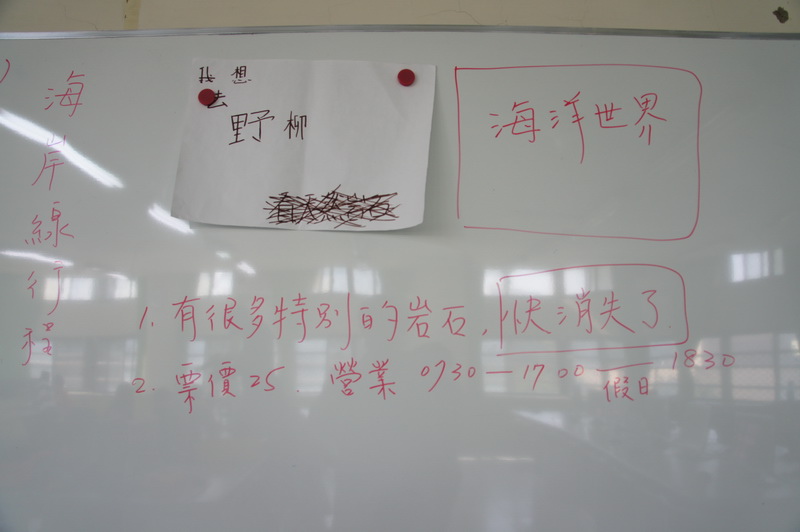 海岸線行程
我想
去
野柳
海洋世界
1. 有很多特別的岩石, 快消失了.
2. 票價25. 營業 0730—1700—1830
假日